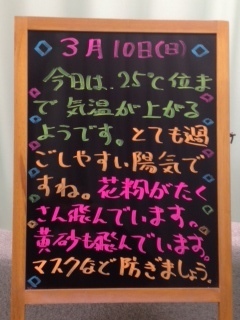 3月10日(日)
今日は、25℃位ま
で気温が上がる
ようです。とても過
ごしやすい陽気で
すね。花粉がたく
さん飛んでいます。
黄砂も飛んでいます。
マスクなど防ぎましょう。